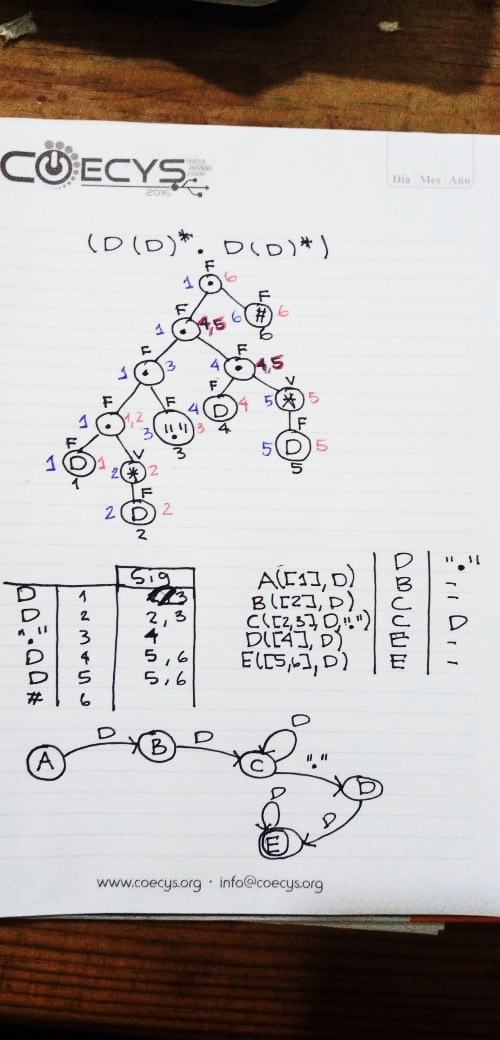 COECYS
2016
Día Mes Año
(D(D)*. D(D)*)
F
1 • 6
F F
1 • 4,5 6 # 6
6
F F
1 • 3 4 • 4,5
F F F V
1 • 1,2 3 "." 3 4 D 4 5 * 5
3 4
F V F
1 D 1 2 * 2 5 D 5
1 5
F
2 D 2
2
Sig
D 1 3
D 2 2,3
"." 3 4
D 4 5,6
D 5 5,6
# 6
D "."
A([1], D) B -
B([2], D) C -
C([2,3], D,".") C D
D([4], D) E -
E([5,6], D) E -
A D B D C D "." D
D E D
www.coecys.org · info@coecys.org